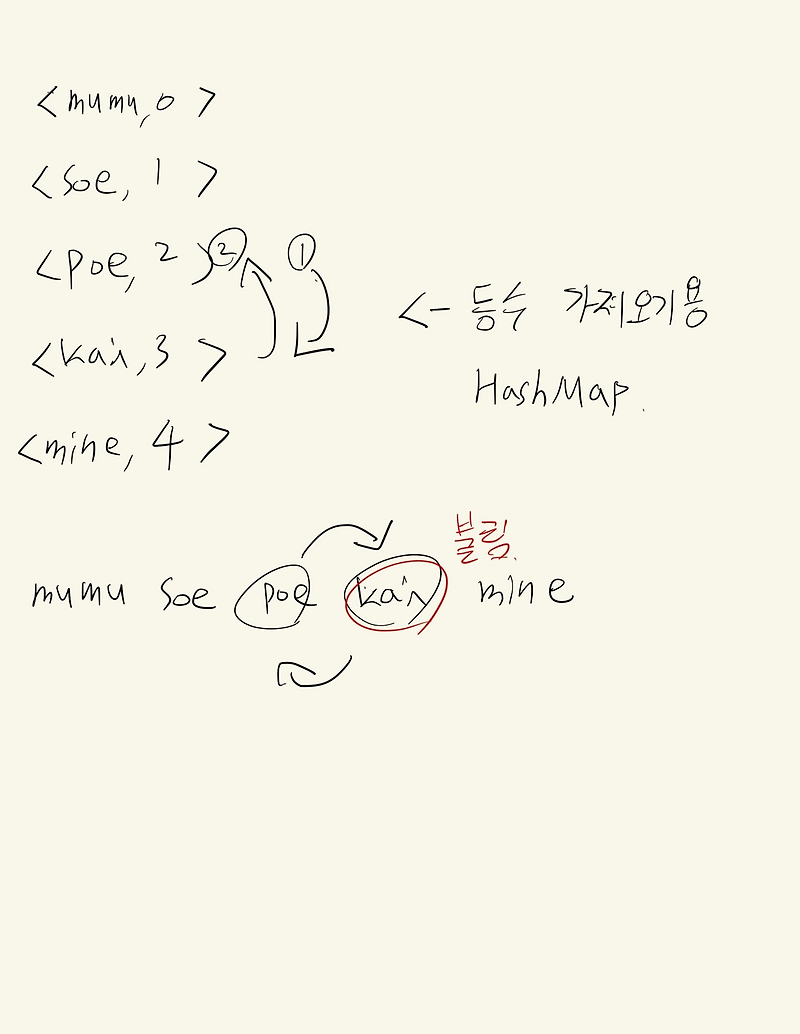 <mumu, 0>
<soe, 1>
<poe, 2> ② ①
<kai, 3>
<mine, 4>
<- 등수 가져오기용
HashMap.
불림.
mumu soe poe kai mine